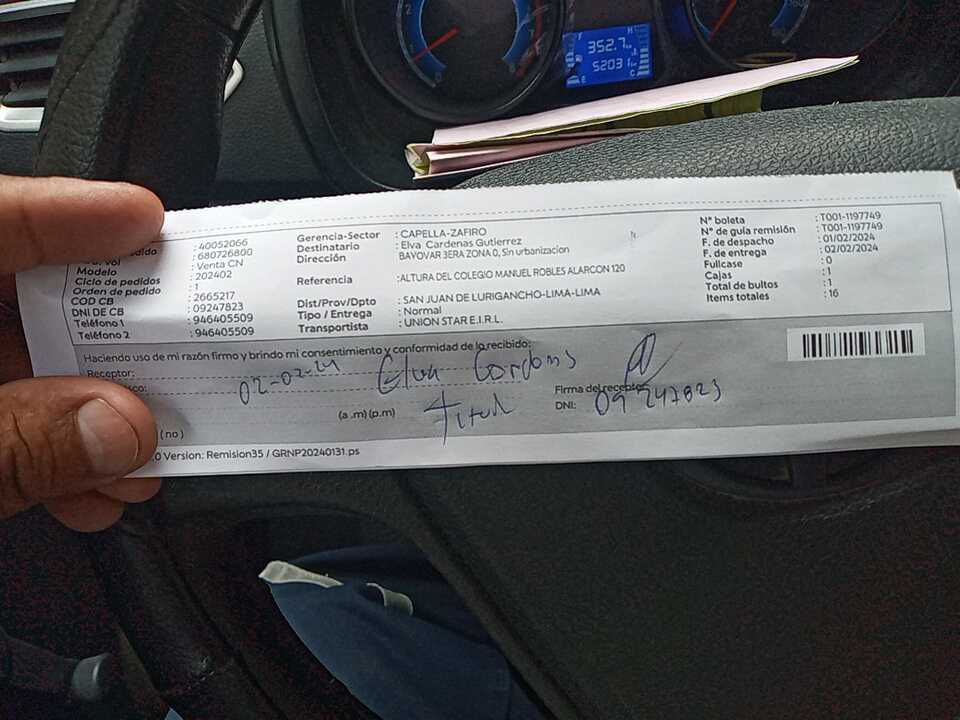 352.7
52031
: 40052066
: 680726800
: Venta CN
Modelo : 202402
Ciclo de pedidos : 1
Orden de pedido
COD CB : 2665217
DNI DE CB : 09247823
Teléfono 1 : 946405509
Teléfono 2 : 946405509
Gerencia-Sector : CAPELLA-ZAFIRO
Destinatario : Elva Cardenas Gutierrez
Dirección BAYOVAR 3ERA ZONA 0, Sin urbanizacion
Referencia :ALTURA DEL COLEGIO MANUEL ROBLES ALARCON 120
Dist/Prov/Dpto : SAN JUAN DE LURIGANCHO-LIMA-LIMA
Tipo / Entrega : Normal
Transportista : UNION STAR E.I.R.L.
N° boleta : T001-1197749
N° de guía remisión : T001-1197749
F. de despacho : 01/02/2024
F. de entrega : 02/02/2024
Fullcase : 0
Cajas : 1
Total de bultos : 1
Items totales : 16
Haciendo uso de mi razón firmo y brindo mi consentimiento y conformidad de lo recibido:
Receptor:
02-02-24 Elva Cardenas
Firma del receptor
(a .m) (p.m) Titul DNI: 09247823
( no )
0 Version: Remision35 / GRNP20240131.ps